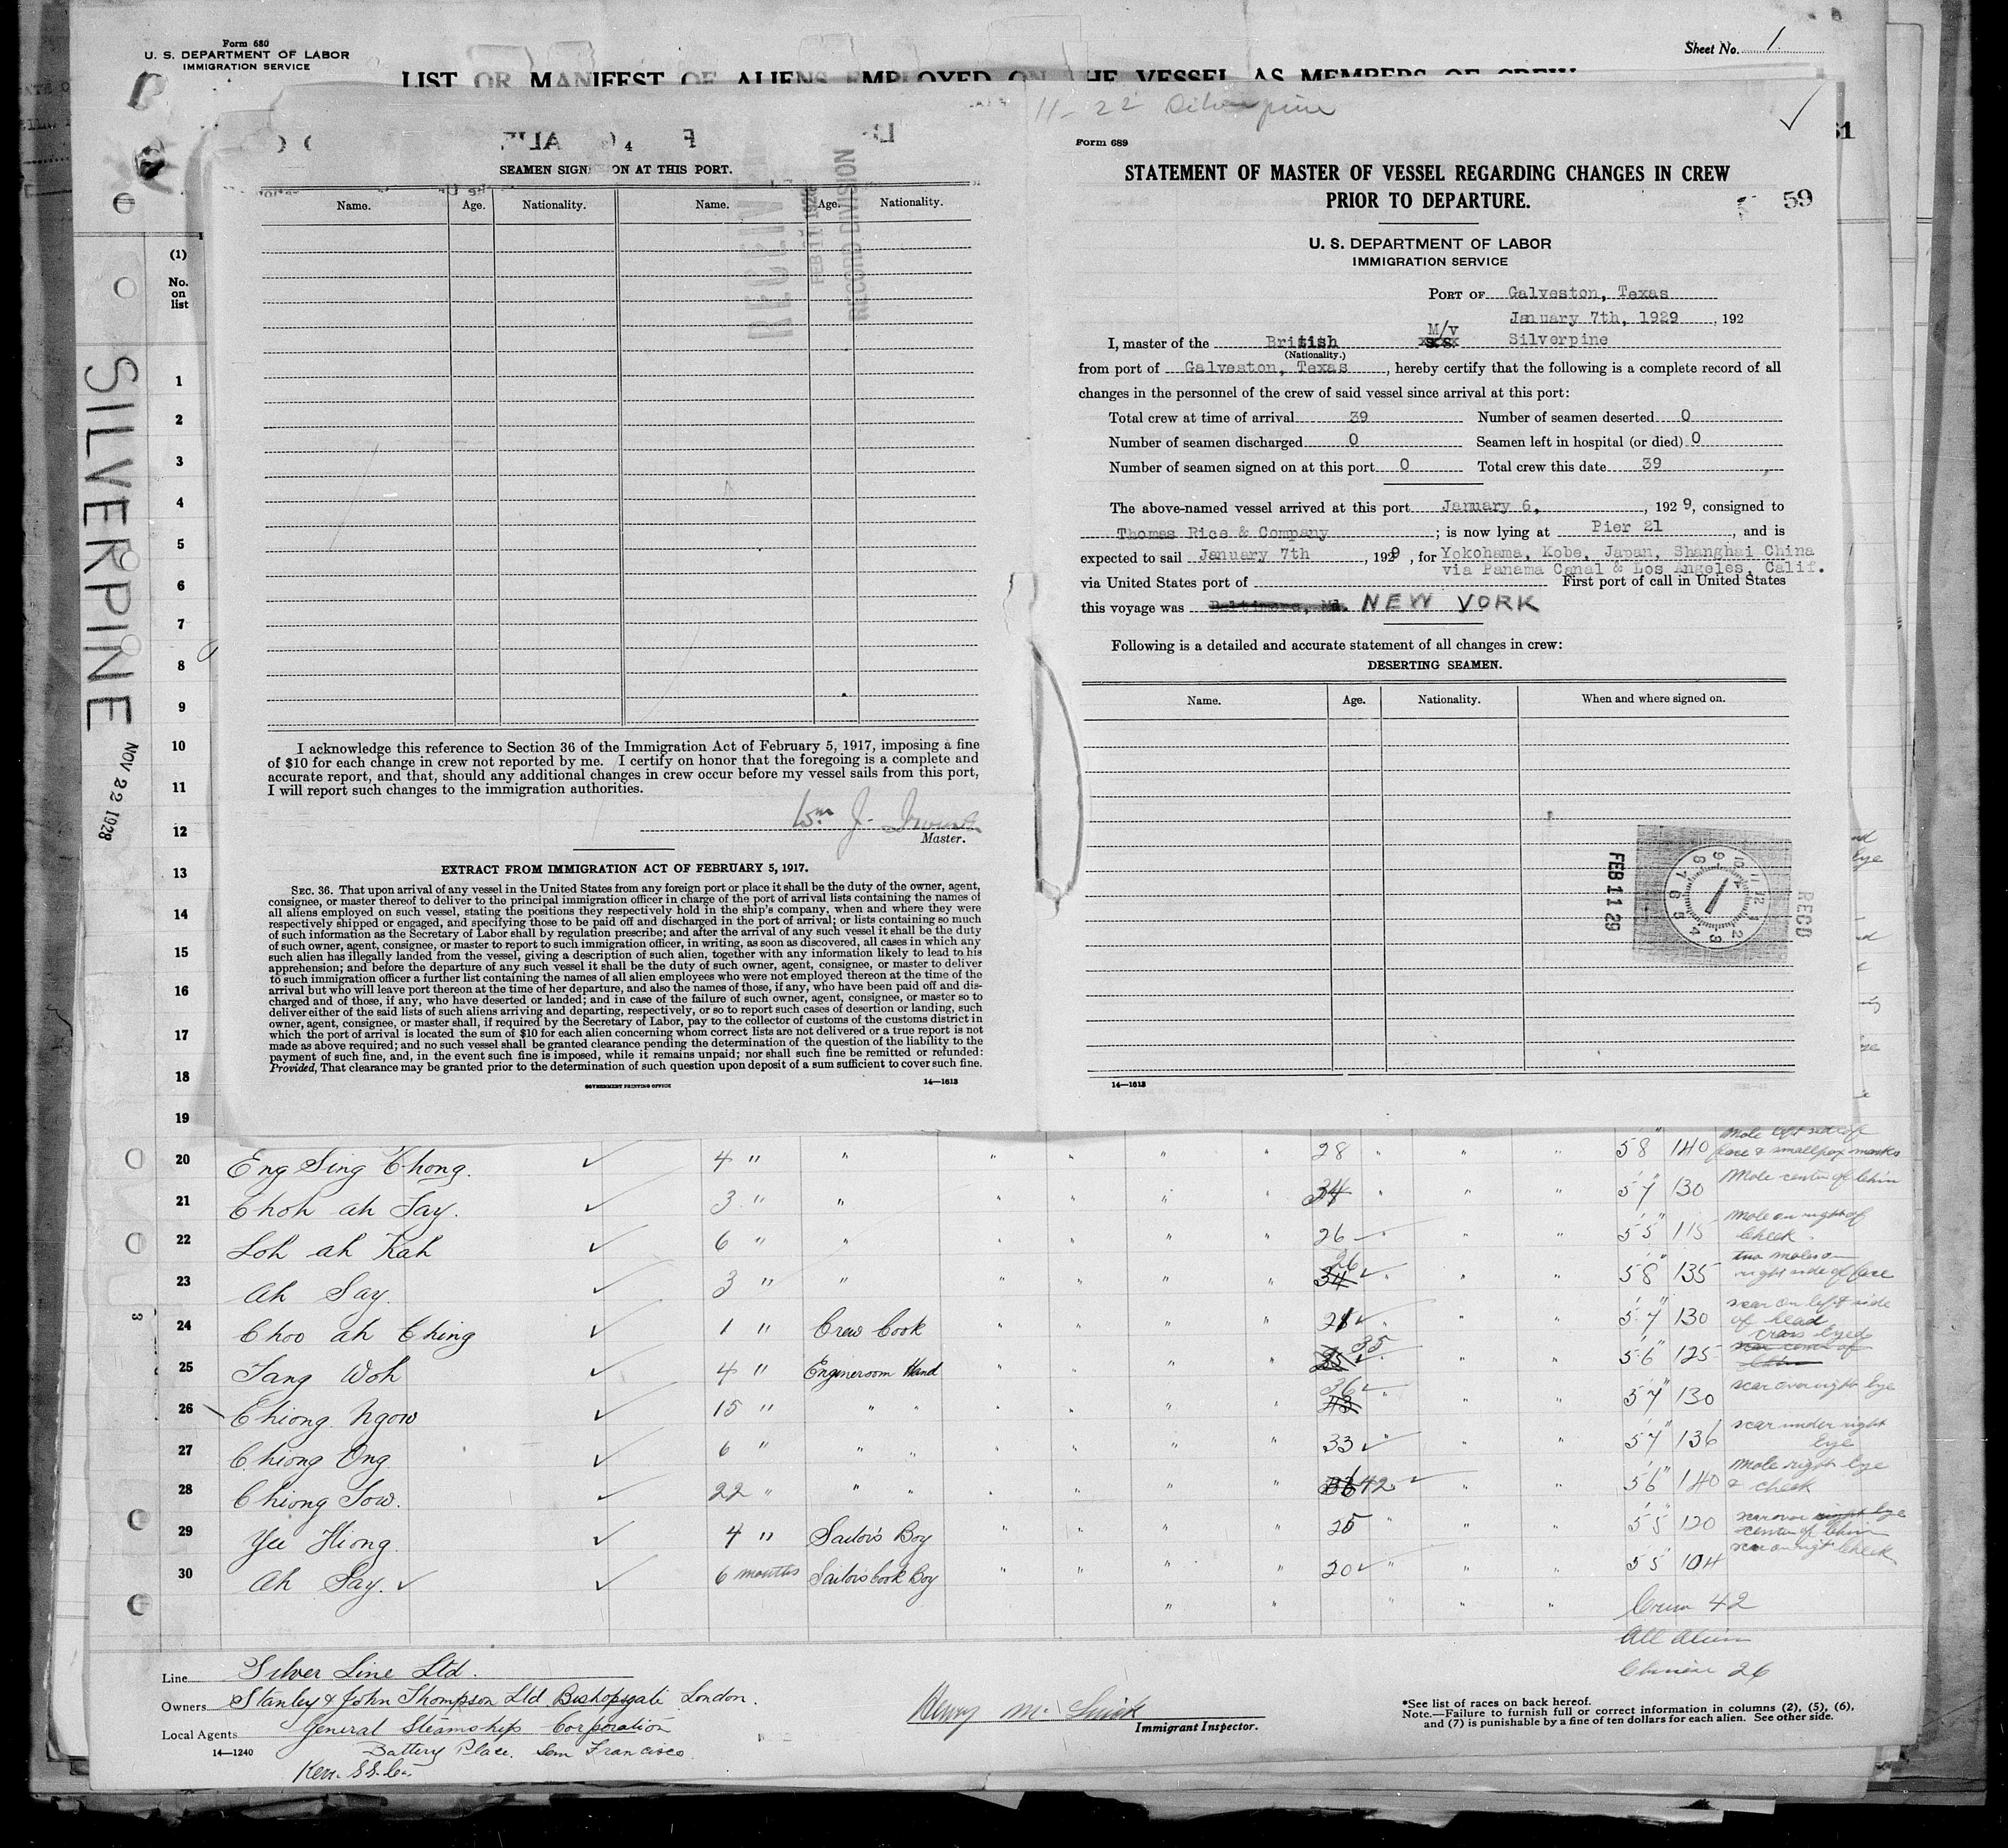 Form 680
U. S. DEPARTMENT OF LABOR
IMMIGRATION SERVICE
Sheet No. 1
LIST OR MANIFEST OF ALIENS EMPLOYED ON THE VESSEL AS MEMBERS OF CREW
SILVERPINE
NOV 22 1928
(1)
No.
on
list
1
2
3
4
5
6
7
8
9
10
11
12
13
14
15
16
17
18
19
SEAMEN SIGNED ON AT THIS PORT.
Name. Age. Nationality. Name. Age. Nationality.
RECORD DIVISION
I acknowledge this reference to Section 36 of the Immigration Act of February 5, 1917, imposing a fine
of $10 for each change in crew not reported by me. I certify on honor that the foregoing is a complete and
accurate report, and that, should any additional changes in crew occur before my vessel sails from this port,
I will report such changes to the immigration authorities.
Wm J.
Master.
EXTRACT FROM IMMIGRATION ACT OF FEBRUARY 5, 1917.
SEC. 36. That upon arrival of any vessel in the United States from any foreign port or place it shall be the duty of the owner, agent,
consignee, or master thereof to deliver to the principal immigration officer in charge of the port of arrival lists containing the names of
all aliens employed on such vessel, stating the positions they respectively hold in the ship's company, when and where they were
respectively shipped or engaged, and specifying those to be paid off and discharged in the port of arrival; or lists containing so much
of such information as the Secretary of Labor shall by regulation prescribe; and after the arrival of any such vessel it shall be the duty
of such owner, agent, consignee, or master to report to such immigration officer, in writing, as soon as discovered, all cases in which any
such alien has illegally landed from the vessel, giving a description of such alien, together with any information likely to lead to his
apprehension; and before the departure of any such vessel it shall be the duty of such owner, agent, consignee, or master to deliver
to such immigration officer a further list containing the names of all alien employees who were not employed thereon at the time of the
arrival but who will leave port thereon at the time of her departure, and also the names of those, if any, who have been paid off and dis-
charged and of those, if any, who have deserted or landed; and in case of the failure of such owner, agent, consignee, or master so to
deliver either of the said lists of such aliens arriving and departing, respectively, or so to report such cases of desertion or landing, such
owner, agent, consignee, or master shall, if required by the Secretary of Labor, pay to the collector of customs of the customs district in
which the port of arrival is located the sum of $10 for each alien concerning whom correct lists are not delivered or a true report is not
made as above required; and no such vessel shall be granted clearance pending the determination of the question of the liability to the
payment of such fine, and, in the event such fine is imposed, while it remains unpaid; nor shall such fine be remitted or refunded:
Provided, That clearance may be granted prior to the determination of such question upon deposit of a sum sufficient to cover such fine.
GOVERNMENT PRINTING OFFICE 14—1613
11-22 Silverpine
Form 689
STATEMENT OF MASTER OF VESSEL REGARDING CHANGES IN CREW
PRIOR TO DEPARTURE.
59
U. S. DEPARTMENT OF LABOR
IMMIGRATION SERVICE
PORT OF Galveston, Texas
January 7th, 1929, 192
I, master of the British M/v S.S. Silverpine
(Nationality.)
from port of Galveston, Texas, hereby certify that the following is a complete record of all
changes in the personnel of the crew of said vessel since arrival at this port:
Total crew at time of arrival 39 Number of seamen deserted 0
Number of seamen discharged 0 Seamen left in hospital (or died) 0
Number of seamen signed on at this port 0 Total crew this date 39
The above-named vessel arrived at this port January 6, , 1929, consigned to
Thomas Rice & Company ; is now lying at Pier 21 , and is
expected to sail January 7th , 1929 , for Yokohama, Kobe, Japan, Shanghai China
via Panama Canal & Los Angeles, Calif.
via United States port of First port of call in United States
this voyage was Baltimore, Md. NEW YORK
Following is a detailed and accurate statement of all changes in crew:
DESERTING SEAMEN.
Name. Age. Nationality. When and where signed on.
FEB 11 29
RECD
14—1613
20 Eng Sing Chong. 4 " " " " " " 28 " " " 5' 8" 140 Mole left side of face & smallpox marks
21 Choh ah Say. 3 " " " " " " 34 " " " 5' 7" 130 Mole center of Chin
22 Loh ah Kah 6 " " " " " " 26 " " " 5' 5" 115 Mole on right of Cheek.
23 Ah Say. 3 " " " " " " 34 26 " " " 5' 8" 135 two moles on right side of face
24 Choo ah Ching 1 " Crew Cook " " " " 21 " " " 5' 7" 130 scar on left side of head
25 Tang Woh 4 " Engineroom Hand " " " " 35 " " " 5' 6" 125 Cross Eyed scar center of Chin
26 Chiong Ngow 15 " " " " " " " 43 36 " " " 5' 7" 130 scar over right Eye
27 Chiong Ong 6 " " " " " " " 33 " " " 5' 7" 136 scar under right Eye
28 Chiong Sow. 22 " " " " " " " 42 " " " 5' 6" 140 Mole right Eye & cheek
29 Yee Hiong. 4 " Sailor's Boy " " " " 25 " " " 5' 5" 120 scar over right Eye center of Chin
30 Ah Say. 6 months Sailor's Cook Boy " " " " 20 " " " 5' 5" 104 scar on right Cheek
Crew 42
All Alien
Chinese 26
Line Silver Line Ltd.
Owners Stanley & John Thompson Ltd Bishopsgate London.
Local Agents General Steamship Corporation
14—1240 Battery Place. San Francisco
Kerr. S.S. Co.
Henry M.
Immigrant Inspector.
*See list of races on back hereof.
Note.—Failure to furnish full or correct information in columns (2), (5), (6),
and (7) is punishable by a fine of ten dollars for each alien. See other side.